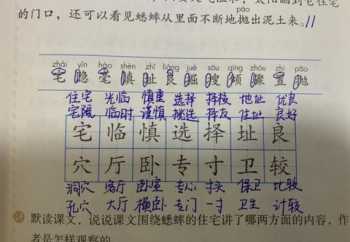 的门口,还可以看见蟋蟀从里面不断地抛出泥土来。
pāo
zhái yǐn háo shèn zhǐ sōu qīng zhòu pāo
宅 隐 毫 慎 址 搜 倾 骤 置 抛
住宅 光临 慎重 选择 择校 地址 优良
宅院 临时 谨慎 挑选 择友 住址 良好
宅 临 慎 选 择 址 良
穴 厅 卧 专 寸 卫 较
洞穴 客厅 卧室 专心 寸头 保卫 比较
孔穴 大厅 横卧 专门 一寸 卫生 计较
默读课文,说说课文围绕蟋蟀的住宅讲了哪两方面的内容,作
者是怎样观察的